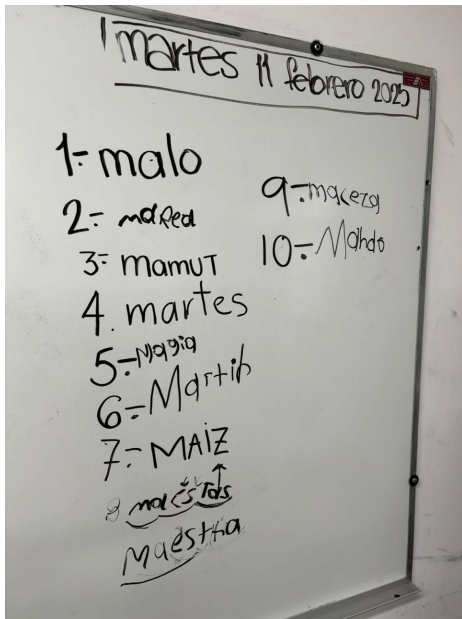 martes 11 febrero 2025
1-. malo
2-. maRed
3-. mamut
4. martes
5-. Magia
6-. Martin
7-. MAIZ
8 maesTas
Maestra
9-. maceza
10-. Mando